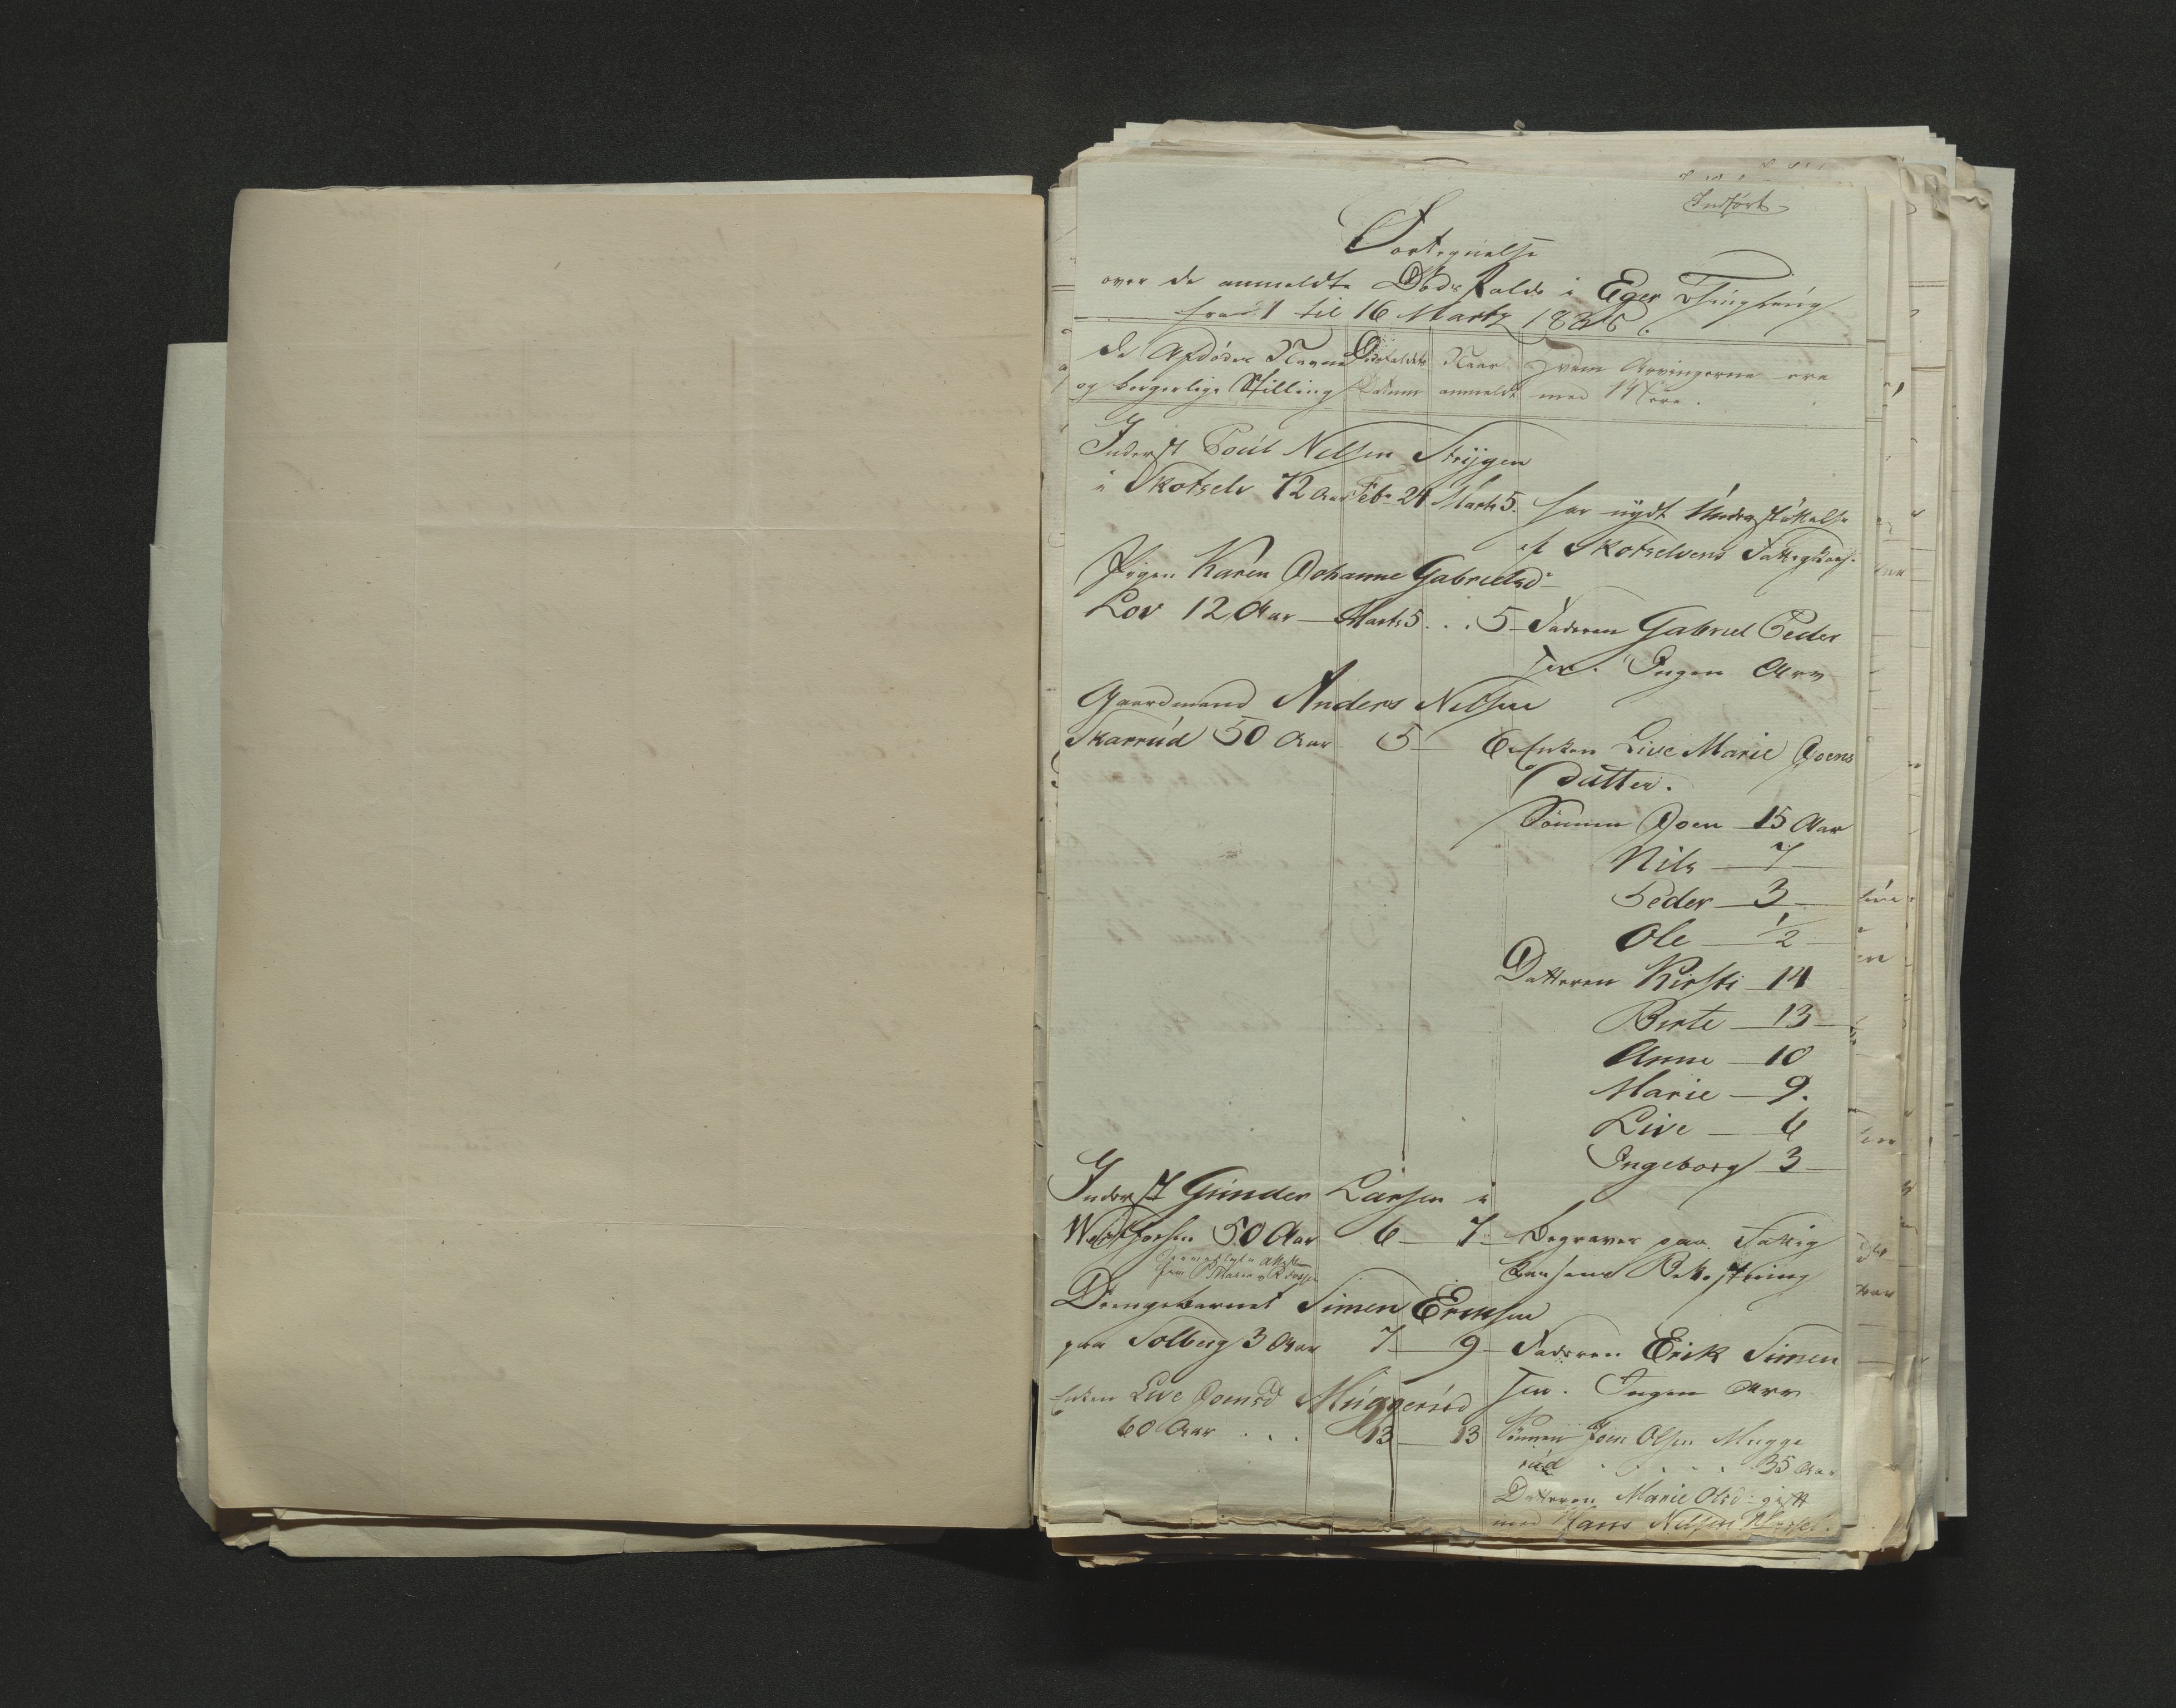 Indført
Fortegnelse
over de anmeldte Dødsfald i Eger Thinglaug
fra 1 til 16 Marts 1836.
de Afdødes Navne Dødsfaldets Naar Hvem Arvingerne ere
og borgerlige Stilling Datum anmeldt med Mere.
Inderst Poül Nelsen Strÿgen
i Skotselv 72 Aar Febr 24 Marts 5. har nÿdt Understøttelse
af Skotselvens Fattigkasse.
Pigen Karen Johanne Gabrielsd
Lov 12 Aar Marts 5 . . . 5 Faderen Gabriel Peder
sen. Ingen Arv
Gaardmand Anders Nelsen
Skarrúd 50 Aar 5 6 Enken Live Marie Joens
Datter.
Sønnen Joen 15 Aar
Nils 7
Peder 3
Ole 1/2
Datteren Kirsti 14
Berte 13
Anne 10
Marie 9.
Live 6
Ingeborg 3
Inderst Gúnder Larsen i
50 Aar 6 7 Begraves paa Fattig
kassens Bekostning
Drengebarnet Simen Eriksen
paa Solberg 3 Aar 7 9 Faderen Erik Simen
sen. Ingen Arv
Enken Live Joensd Múggerúd
60 Aar . . . 13 13 Sønnen Joen Olsen Mugge
rúd . . . . . 35 Aar
Datteren Marie Olsd gift
med Hans Nelsen